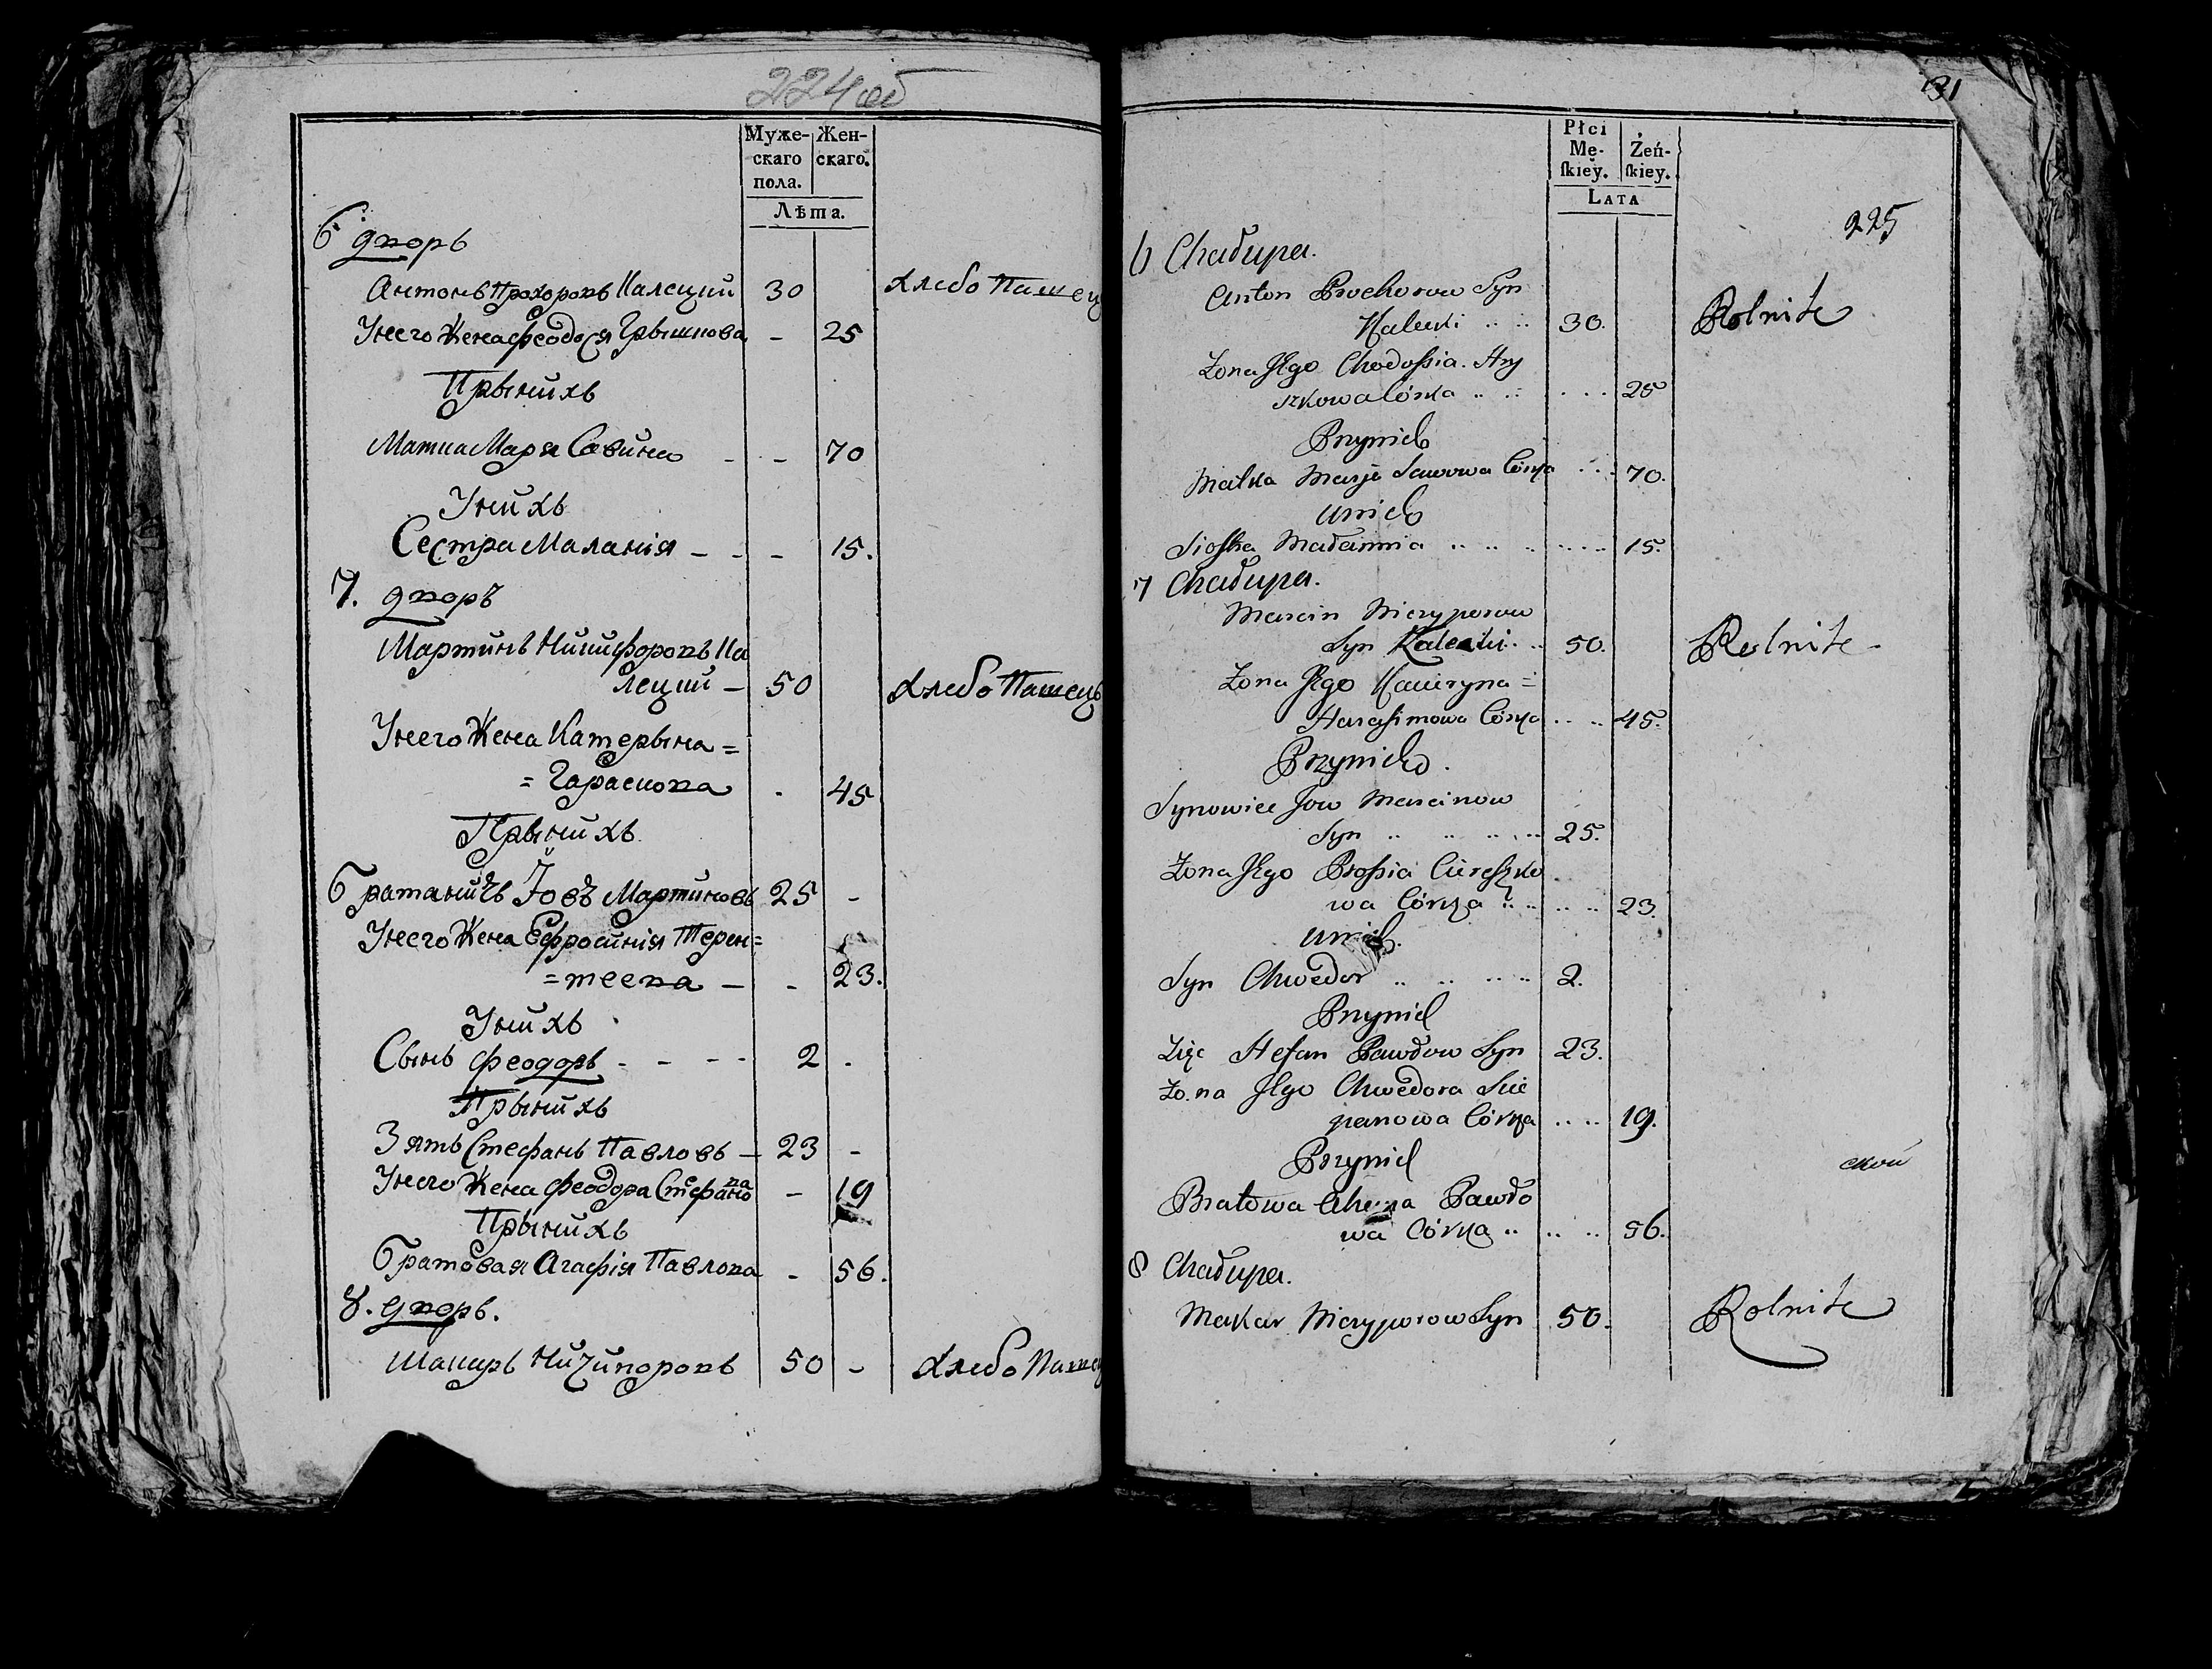 224 об
Муже-
скаго
пола.
Жен-
скаго.
Лѣта.
6 дворъ
Антонъ Прохоровъ Калецкий 30 хлебо Пашец
Унего жена Феодося Грышкова - 25
Прыних
Матка Маря Савина - - 70
Уних
Сестра Малания - - - 15.
7. дворъ
Мартинъ Никифоровъ Ка
лецкий - 50 хлебо Пашецъ
Унего Жена Катерына =
= Гараскова - 45
Прыних
Братаничъ Іовъ Мартиновъ 25 -
Унего Жена Ефросинія Терен=
= теева - - 23.
Уних
Сынъ Феодоръ - - - - 2 -
Прыних
Зять Стефанъ Павловъ - 23 -
Унего Жена Феодора Стефано
ва - 19
Прыних
Братовая Агафія Павлова - 56.
8. дворъ.
Макаръ Ничипоровъ 50 - хлебо Пашец
31
Płci
Mę-
ſkiey.
Żeń-
ſkiey.
LATA
225
6 Chałupa.
Anton Prochorow Syn
Kalecki .. .. 30. Rolnik
Zona Jego Chodossia Hry
szkowa Córka .. .. . . . 25
Przynich
Matka Marja Sawowa Córka . . . 70.
Unich
Siostra Małannia .. .. .. .. .. 15.
7 Chałupa.
Marcin Niczyporow
Syn Kalecki .. .. 50. Rolnik
Zona Jego Kateryna =
Harasimowa Córka .. .. 45.
Przynich.
Synowiec Jow Marcinow
Syn .. .. .. .. 25.
Zona Jego Prossia
wa Córka .. .. .. .. 23.
Unich.
Syn Chwedor .. .. .. .. 2.
Przynich
Zięć Stefan Pawłow Syn 23.
Zona Jego Chwedora Stie
panowa Córka .. .. 19.
Przynich
ской
Bratowa Pawło
wa Córka .. .. .. 56.
8 Chałupa.
Makar Niczyporow Syn 50. Rolnik